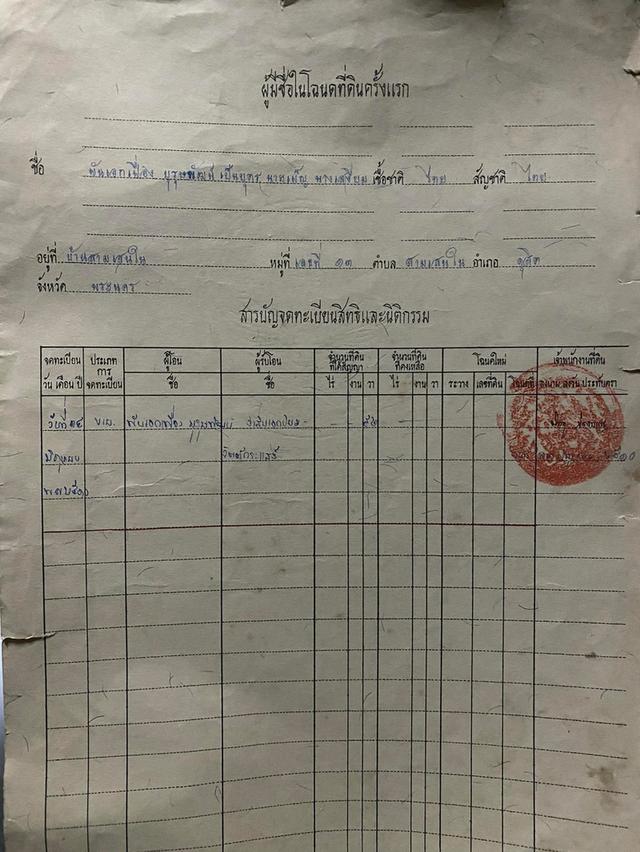 ผู้มีชื่อในโฉนดที่ดินครั้งแรก
ชื่อ พันเอกเฟื่อง บุรุษพัฒน์ เป็นบุตร นายเผิญ นางเสงี่ยม เชื้อชาติ ไทย สัญชาติ ไทย
อยู่ที่ บ้านสามเสนใน หมู่ที่ เลขที่ ๑๓ ตำบล สามเสนใน อำเภอ ดุสิต
จังหวัด พระนคร
สารบัญจดทะเบียนสิทธิและนิติกรรม
จดทะเบียน ประเภท ผู้โอน ผู้รับโอน จำนวนที่ดิน จำนวนที่ดิน โฉนดใหม่ เจ้าพนักงานที่ดิน
การ ที่ได้สัญญา ที่คงเหลือ
วัน เดือน ปี จดทะเบียน ชื่อ ชื่อ ไร่ งาน วา ไร่ งาน วา ระวาง เลขที่ดิน โฉนดที่ ลงนาม ลงวัน ประทับตรา
วันที่ พันเอกเฟื่อง บุรุษพัฒน์ - - - - -
มิถุนายน ๒๕๑๐